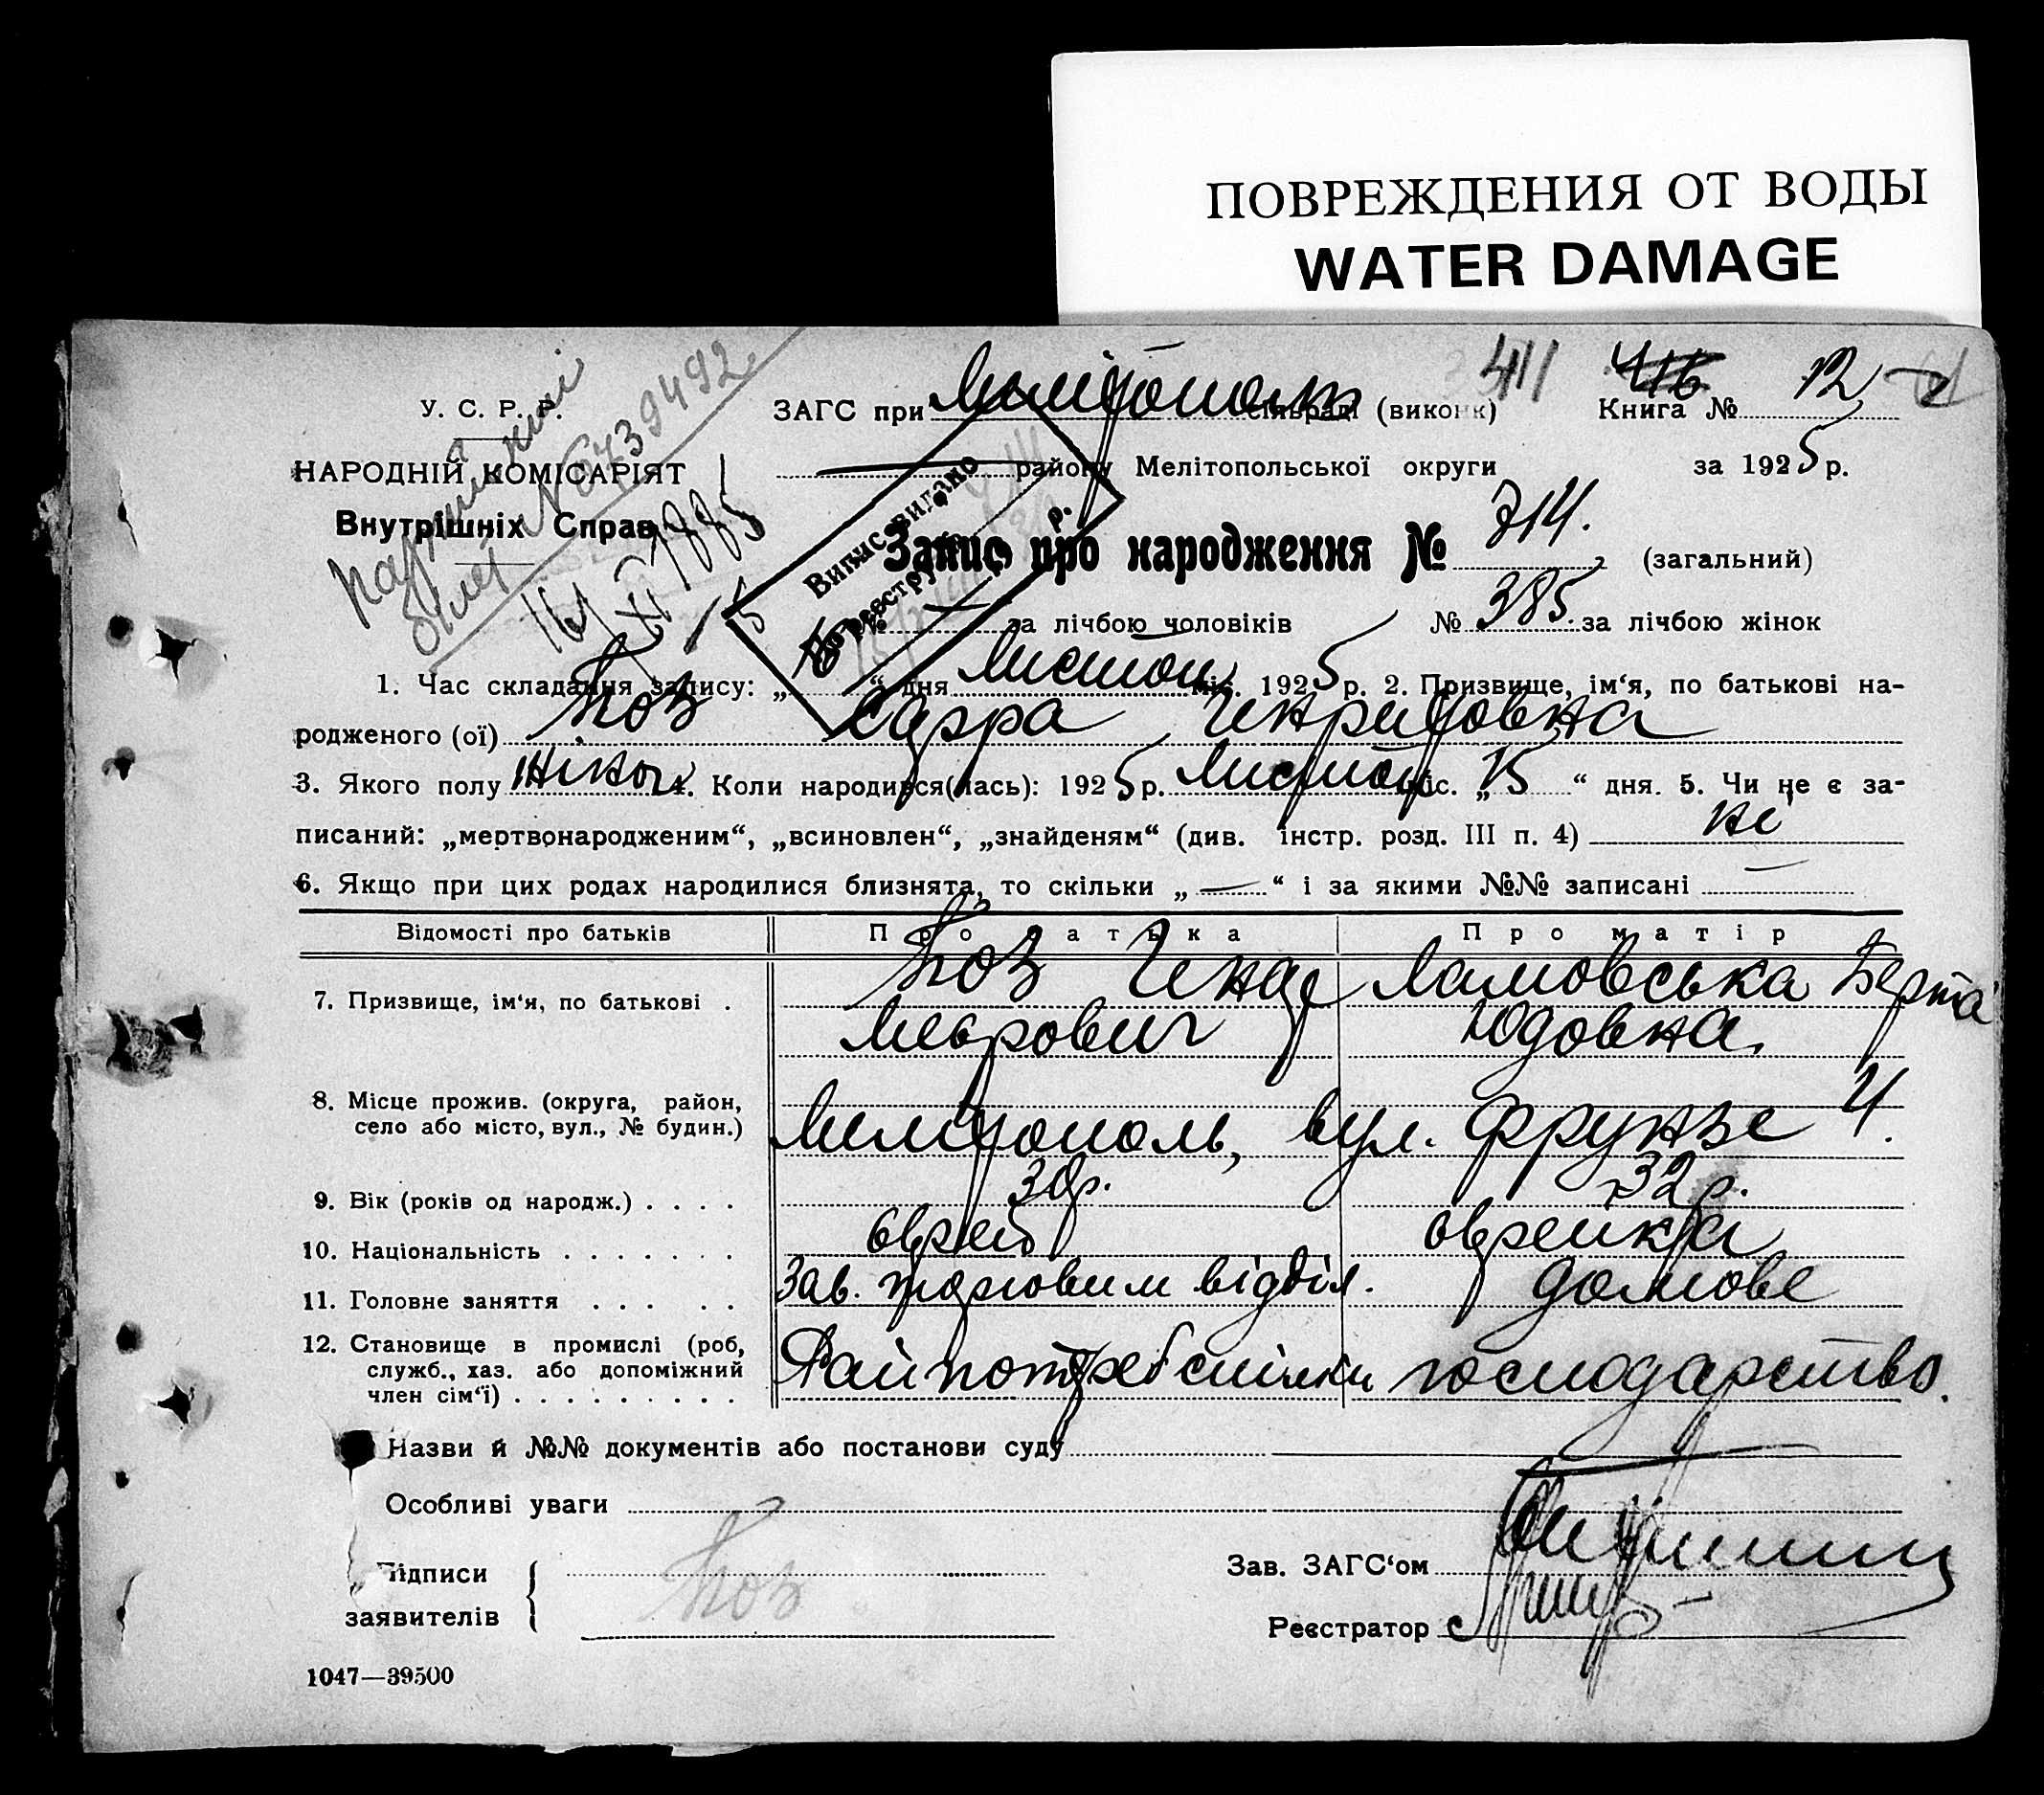 ПОВРЕЖДЕНИЯ ОТ ВОДЫ
WATER DAMAGE
411 416
У. С. Р. Р. ЗАГС при Мелітополь сільраді (виконк) Книга № 12
НАРОДНІЙ КОМІСАРІЯТ району Мелітопольської округи за 1925 р.
Внутрішніх Справ
білет № 0739492
Випис видано
по реєстру
р.
Запис про народження № 714. (загальний)
№ за лічбою чоловіків № 385. за лічбою жінок
1. Час складання запису: „ “ дня Листоп міс. 1925 р. 2. Призвище, ім‘я, по батькові на-
родженого (ої) Боз Сарра Генриховна
3. Якого полу жіноч 4. Коли народився(лась): 1925 р. Листоп міс. „15 “ дня. 5. Чи не є за-
писаний: „мертвонародженим“, „всиновлен“, „знайденям“ (див. інстр. розд. III п. 4) не
6. Якщо при цих родах народилися близнята, то скільки „—“ і за якими №№ записані —
Відомості про батьків Про батька Про матір
7. Призвище, ім‘я, по батькові . Боз Ламовська Берта
Меєрович Юдовна
8. Місце прожив. (округа, район,
село або місто, вул., № будин.) Мелітополь, вул. Фрунзе 4.
9. Вік (років од народж.) . . . . 30 р. 32 р.
10. Національність . . . . . . . єврей єврейка
11. Головне заняття . . . . . Зав. торговим відділ. домове
12. Становище в промислі (роб,
служб., хаз. або допоміжний
член сім‘ї) . . . . . . . . . Райпотребспілки господарство.
Назви й №№ документів або постанови суду —
Особливі уваги
Підписи
заявителів Боз
Зав. ЗАГС‘ом
Реєстратор
1047—39500